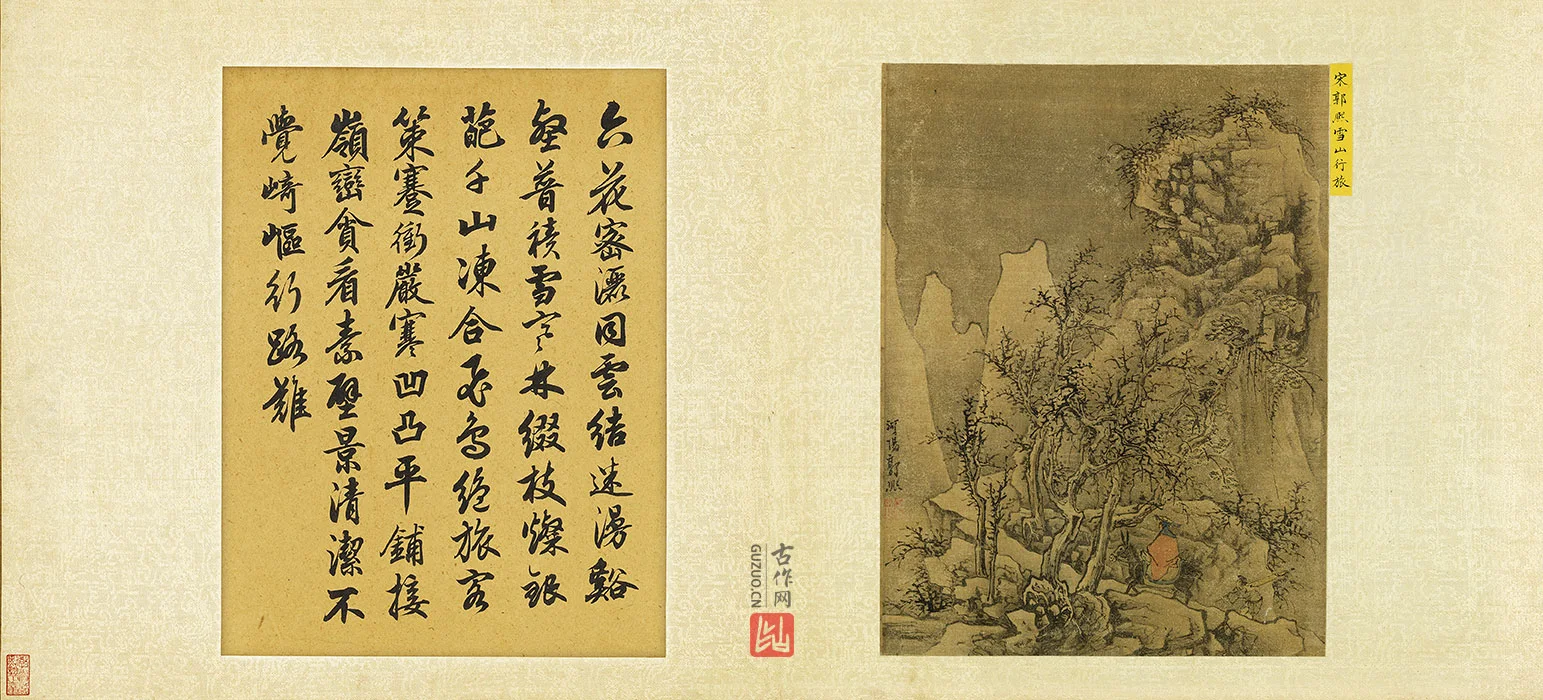 宋郭熙雪山行旅
河陽郭熙
六花密灑同雲結迷漫谿
壑普積雪寒林綴枝燦銀
葩千山凍合飛鳥絕旅客
策蹇衝嚴寒凹凸平鋪接
嶺巒貪看素壁景清潔不
覺崎嶇行路難
古作网
GUZUO.CN